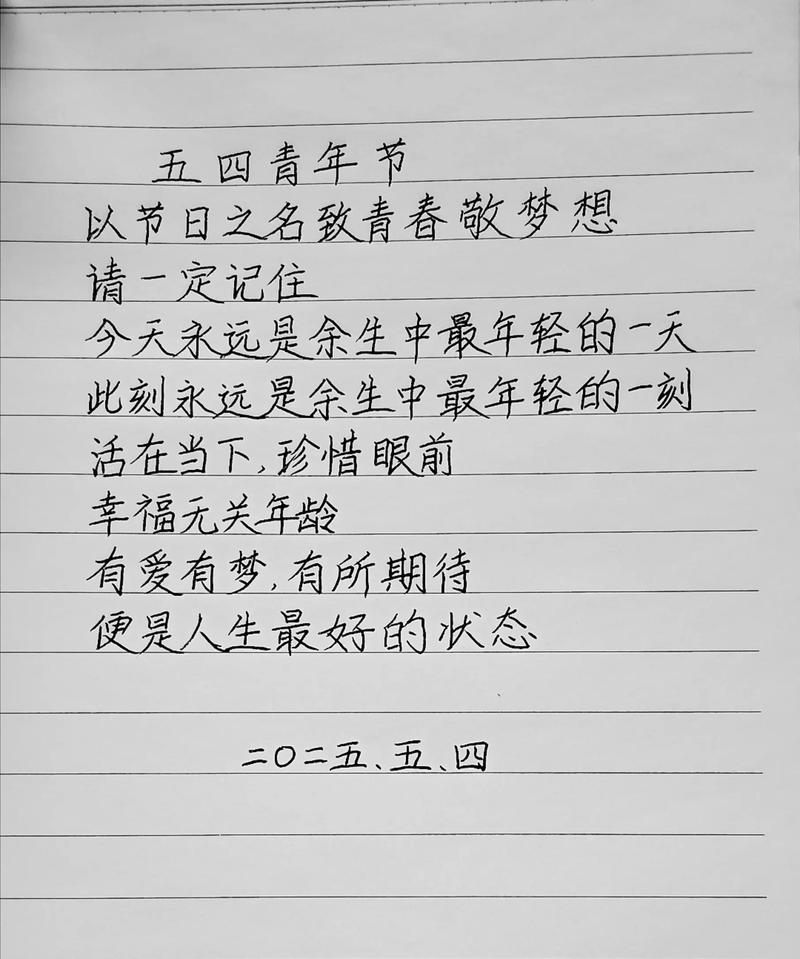 五四青年节
以节日之名致青春敬梦想
请一定记住
今天永远是余生中最年轻的一天
此刻永远是余生中最年轻的一刻
活在当下,珍惜眼前
幸福无关年龄
有爱有梦,有所期待
便是人生最好的状态
二〇二五、五、四